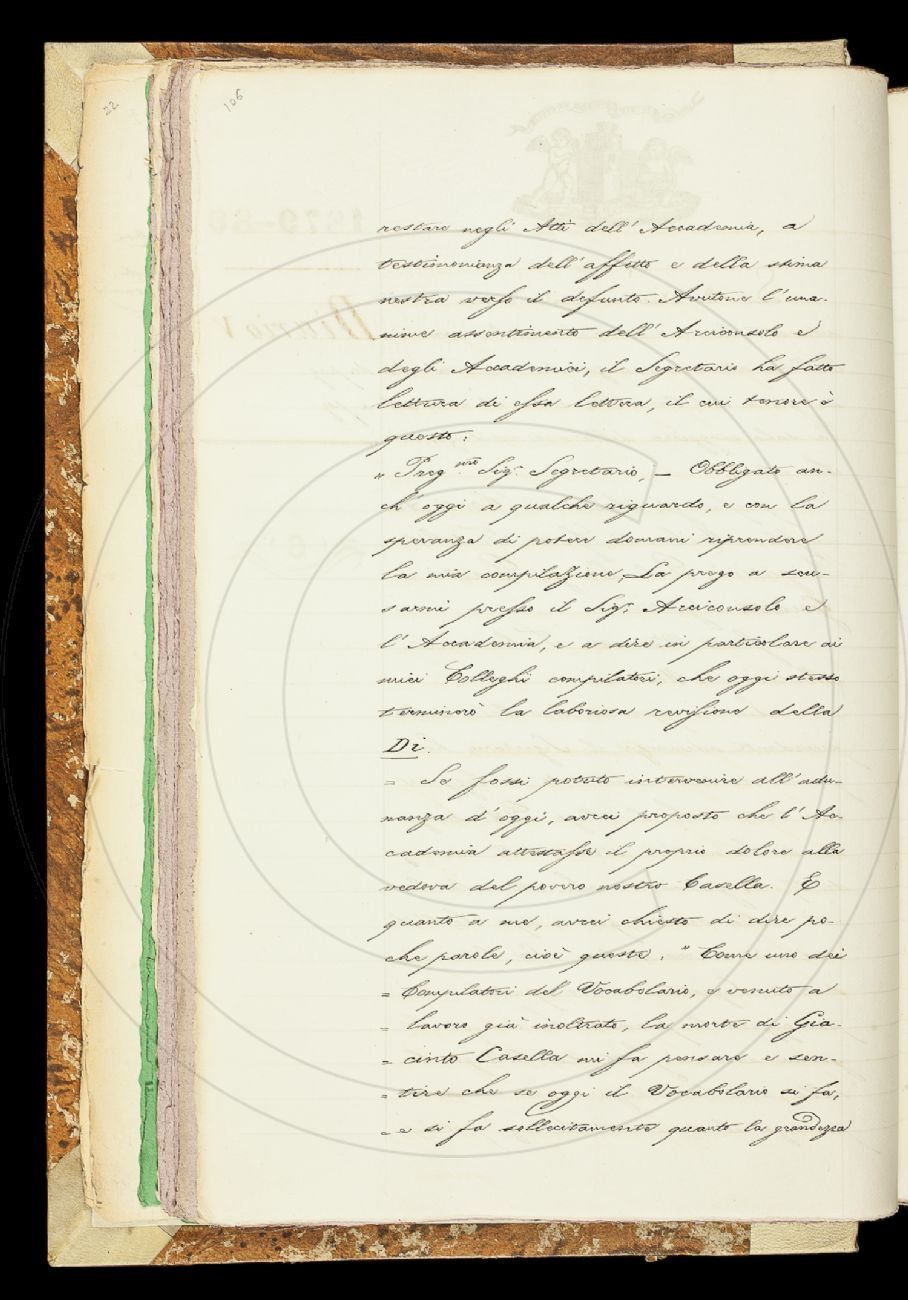 22
106
restare negli Atti dell'Accademia, a
testimonianza dell'affetto e della stima
nostra verso il defunto. Avutone l'una-
nime assentimento dell'Arciconsolo e
degli Accademici, il Segretario ha fatto
lettura di essa lettera, il cui tenore è
questo:
„ Preg.mo Sig.r Segretario, — Obbligato an-
ch'oggi a qualche riguardo, e con la
speranza di potere domani riprendere
la mia compilazione, La prego a scu-
sarmi presso il Sig.r Arciconsolo e
l'Accademia, e a dire in particolare ai
miei Colleghi compilatori, che oggi stesso
terminerò la laboriosa revisione della
Di.
= Se fossi potuto intervenire all'adu-
nanza d'oggi, avrei proposto che l'Ac-
cademia attestasse il proprio dolore alla
vedova del povero nostro Casella. E
quanto a me, avrei chiesto di dire po-
che parole, cioè queste: " Come uno dei
= Compilatori del Vocabolario, e venuto a
= lavoro già inoltrato, la morte di Gia-
= cinto Casella mi fa pensare e sen-
= tire che se oggi il Vocabolario si fa,
= e si fa sollecitamente quanto la grandezza